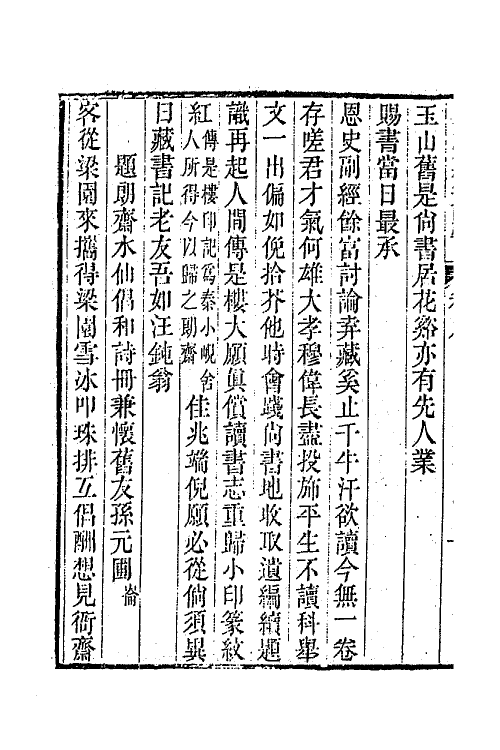 玉山舊是尙書居花谿亦有先人業
賜書當日最承
恩史副經餘富討論弆藏奚止千牛汗欲讀今無一卷
存嗟君才氣何雄大孝穆偉長盡投旆平生不讀科舉
文一出偏如俛拾芥他時會踐尙書地收取遺編續題
識再起人間傳是樓大願眞償讀書志重歸小印篆紋
紅傳是樓印記爲秦小峴舍人所得今以歸之勖齋佳兆端倪願必從倘須異
日藏書記老友吾如汪鈍翁
題勖齋水仙倡和詩冊兼懷舊友孫元圃
客從梁園來攜得梁園雪冰叩珠排互倡酬想見衙齋